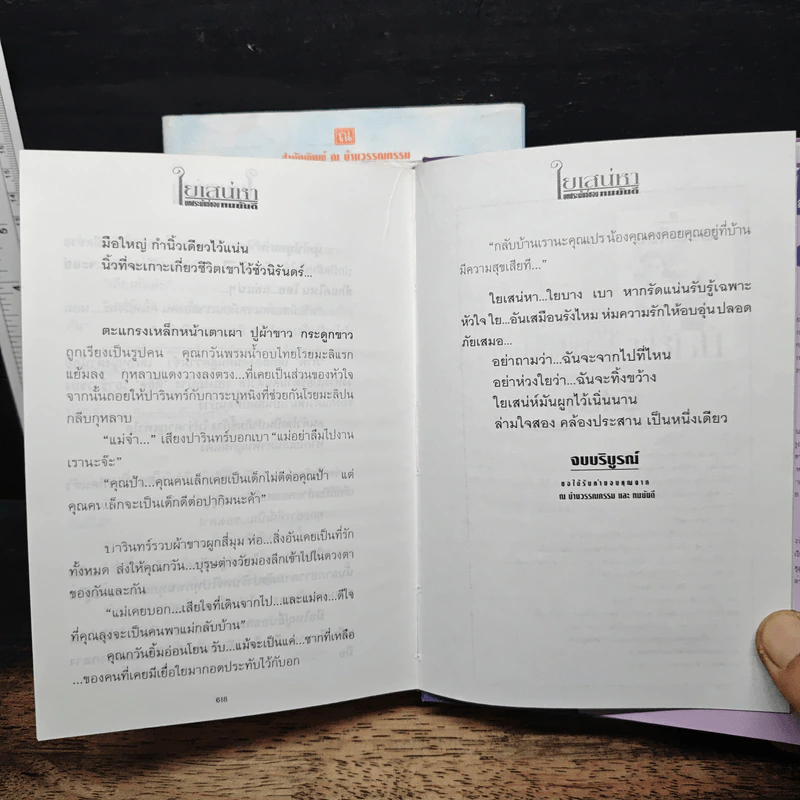 ณ
สำนักพิมพ์ ณ บ้านวรรณกรรม
ใยเสน่หา
บทประพันธ์ของ กนยันดี
มือใหญ่ กำนิ้วเดียวไว้แน่น
นิ้วที่จะเกาะเกี่ยวชีวิตเขาไว้ชั่วนิรันดร์...
ตะแกรงเหล็กหน้าเตาเผา ปูผ้าขาว กระดูกขาว
ถูกเรียงเป็นรูปคน คุณกวินพรมน้ำอบไทยโรยมะลิแรก
แย้มลง กุหลาบแดงวางลงตรง...ที่เคยเป็นส่วนของหัวใจ
จากนั้นถอยให้ปารินทร์กับการะบุหนิงที่ช่วยกันโรยมะลิปน
กลีบกุหลาบ
“แม่จ๋า...” เสียงปารินทร์บอกเบา “แม่อย่าลืมไปงาน
เรานะจ๊ะ”
“คุณป้า...คุณคนเล็กเคยเป็นเด็กไม่ดีต่อคุณป้า แต่
คุณคนเล็กจะเป็นเด็กดีต่อปากิมนะค้า”
ปารินทร์รวบผ้าขาวผูกสี่มุม ห่อ...สิ่งอันเคยเป็นที่รัก
ทั้งหมด ส่งให้คุณกวิน...บุรุษต่างวัยมองลึกเข้าไปในดวงตา
ของกันและกัน
“แม่เคยบอก...เสียใจที่เดินจากไป...และแม่คง...ดีใจ
ที่คุณลุงจะเป็นคนพาแม่กลับบ้าน”
คุณกวินยิ้มอ่อนโยน รับ...แม้จะเป็นแค่...ซากที่เหลือ
...ของคนที่เคยมีเยื่อใยมากอดประทับไว้กับอก
618
ใยเสน่หา
บทประพันธ์ของ กนยันดี
“กลับบ้านเรานะคุณเปร น้องคุณคงคอยคุณอยู่ที่บ้าน
มีความสุขเสียที...”
ใยเสน่หา...ใยบาง เบา หากรัดแน่นรับรู้เฉพาะ
หัวใจ ใย...อันเสมือนรังไหม ห่มความรักให้อบอุ่นปลอด
ภัยเสมอ...
อย่าถามว่า...ฉันจะจากไปที่ไหน
อย่าห่วงใยว่า...ฉันจะทิ้งขว้าง
ใยเสน่ห์มันผูกไว้เนิ่นนาน
ล่ามใจสอง คล้องประสาน เป็นหนึ่งเดียว
จบบริบูรณ์
ขอได้รับคำขอบคุณจาก
ณ บ้านวรรณกรรม และ กนยันดี